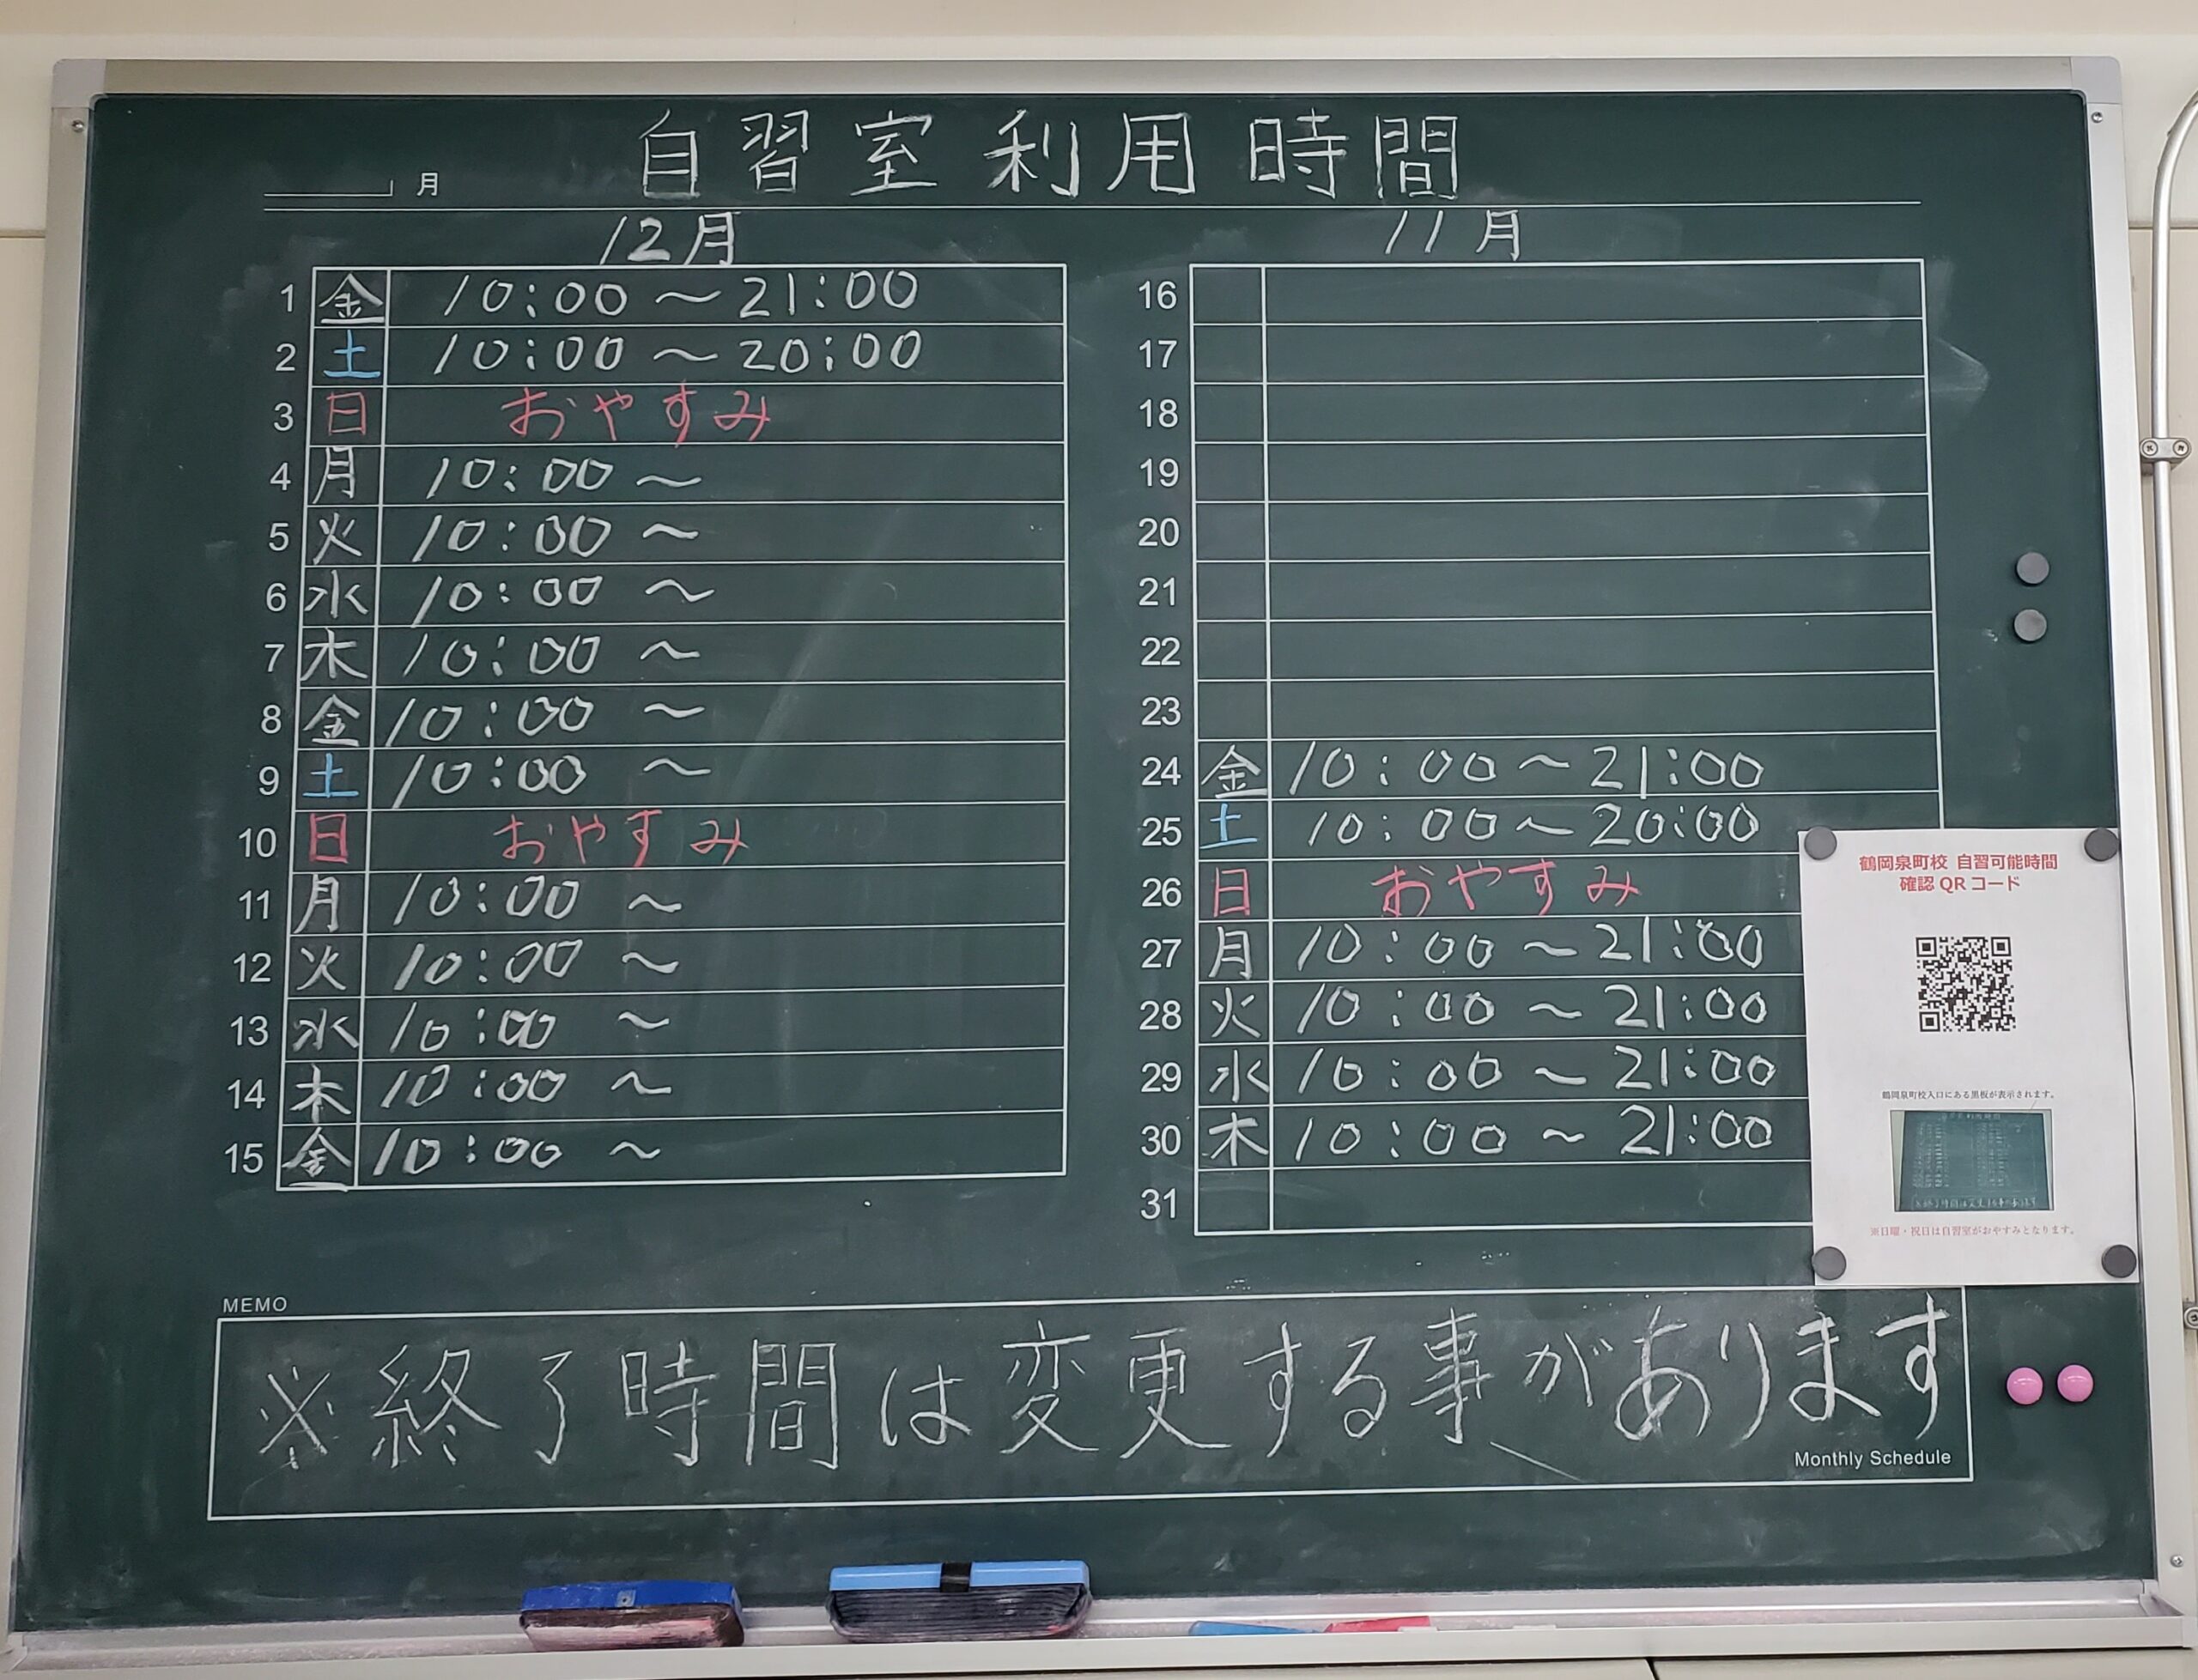 自習室利用時間
月
12月
1 金 10:00～21:00
2 土 10:00～20:00
3 日 おやすみ
4 月 10:00～
5 火 10:00～
6 水 10:00～
7 木 10:00～
8 金 10:00～
9 土 10:00～
10 日 おやすみ
11 月 10:00～
12 火 10:00～
13 水 10:00～
14 木 10:00～
15 金 10:00～
11月
16
17
18
19
20
21
22
23
24 金 10:00～21:00
25 土 10:00～20:00
26 日 おやすみ
27 月 10:00～21:00
28 火 10:00～21:00
29 水 10:00～21:00
30 木 10:00～21:00
31
鶴岡泉町校 自習可能時間
確認QRコード
鶴岡泉町校入口にある黒板が表示されます。
※日曜・祝日は自習室がおやすみとなります。
MEMO
※終了時間は変更する事があります
Monthly Schedule